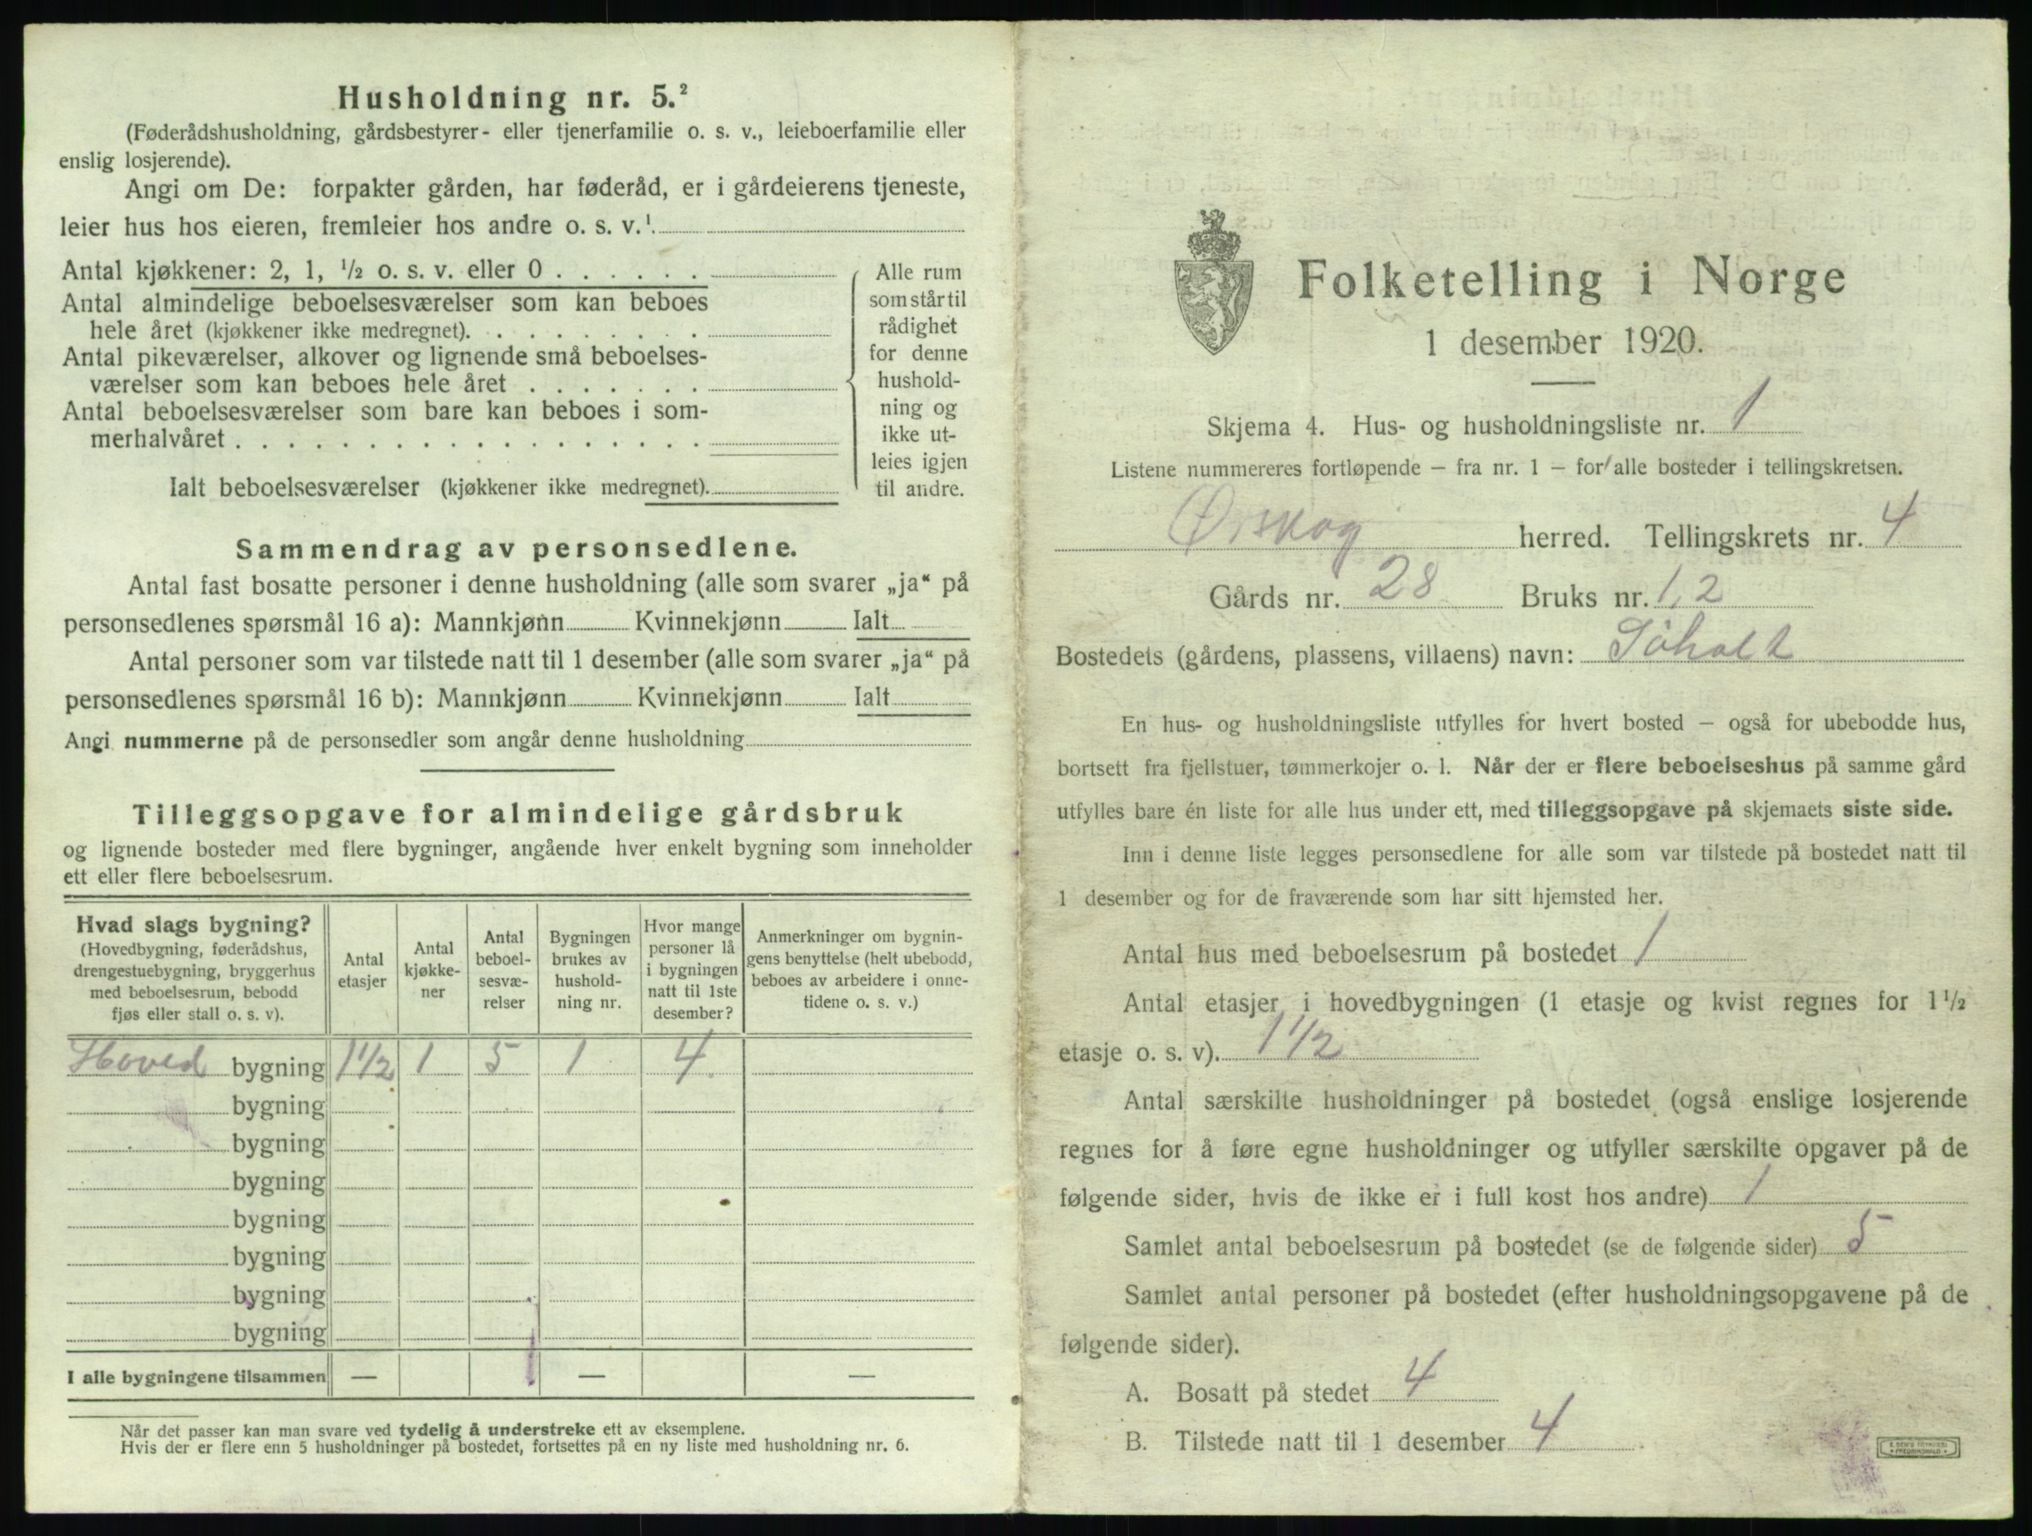 Husholdning nr. 5.²
(Føderådshusholdning, gårdsbestyrer- eller tjenerfamilie o. s. v., leieboerfamilie eller
enslig losjerende).
Angi om De: forpakter gården, har føderåd, er i gårdeierens tjeneste,
leier hus hos eieren, fremleier hos andre o. s. v.¹
Antal kjøkkener: 2, 1, ½ o. s. v. eller 0
Antal almindelige beboelsesværelser som kan beboes
hele året (kjøkkener ikke medregnet).
Antal pikeværelser, alkover og lignende små beboelses-
værelser som kan beboes hele året
Antal beboelsesværelser som bare kan beboes i som-
merhalvåret
Ialt beboelsesværelser (kjøkkener ikke medregnet).
Alle rum
som står til
rådighet
for denne
hushold-
ning og
ikke ut-
leies igjen
til andre.
Sammendrag av personsedlene.
Antal fast bosatte personer i denne husholdning (alle som svarer „ja“ på
personsedlenes spørsmål 16 a): Mannkjønn Kvinnekjønn Ialt
Antal personer som var tilstede natt til 1 desember (alle som svarer „ja“ på
personsedlenes spørsmål 16 b): Mannkjønn Kvinnekjønn Ialt
Angi nummerne på de personsedler som angår denne husholdning
Tilleggsopgave for almindelige gårdsbruk
og lignende bosteder med flere bygninger, angående hver enkelt bygning som inneholder
ett eller flere beboelsesrum.
Hvad slags bygning?
(Hovedbygning, føderådshus,
drengestuebygning, bryggerhus
med beboelsesrum, bebodd
fjøs eller stall o. s. v).
Antal
etasjer
Antal
kjøkke-
ner
Antal
beboel-
sesvæ-
relser
Bygningen
brukes av
hushold-
ning nr.
Hvor mange
personer lå
i bygningen
natt til 1ste
desember?
Anmerkninger om bygnin-
gens benyttelse (helt ubebodd,
beboes av arbeidere i onne-
tidene o. s. v.)
Hoved bygning 1½ 1 5 1 4
bygning
bygning
bygning
bygning
bygning
bygning
bygning
I alle bygningene tilsammen — — —
Når det passer kan man svare ved tydelig å understreke ett av eksemplene.
Hvis der er flere enn 5 husholdninger på bostedet, fortsettes på en ny liste med husholdning nr. 6.
Folketelling i Norge
1 desember 1920.
Skjema 4. Hus- og husholdningsliste nr. 1
Listene nummereres fortløpende – fra nr. 1 – for alle bosteder i tellingskretsen.
Ørskog herred. Tellingskrets nr. 4
Gårds nr. 28 Bruks nr. 1,2
Bostedets (gårdens, plassens, villaens) navn: Søholt
En hus- og husholdningsliste utfylles for hvert bosted – også for ubebodde hus,
bortsett fra fjellstuer, tømmerkojer o. l. Når der er flere beboelseshus på samme gård
utfylles bare én liste for alle hus under ett, med tilleggsopgave på skjemaets siste side.
Inn i denne liste legges personsedlene for alle som var tilstede på bostedet natt til
1 desember og for de fraværende som har sitt hjemsted her.
Antal hus med beboelsesrum på bostedet 1
Antal etasjer i hovedbygningen (1 etasje og kvist regnes for 1½
etasje o. s. v). 1½
Antal særskilte husholdninger på bostedet (også enslige losjerende
regnes for å føre egne husholdninger og utfyller særskilte opgaver på de
følgende sider, hvis de ikke er i full kost hos andre) 1
Samlet antal beboelsesrum på bostedet (se de følgende sider) 5
Samlet antal personer på bostedet (efter husholdningsopgavene på de
følgende sider).
A. Bosatt på stedet 4
B. Tilstede natt til 1 desember 4